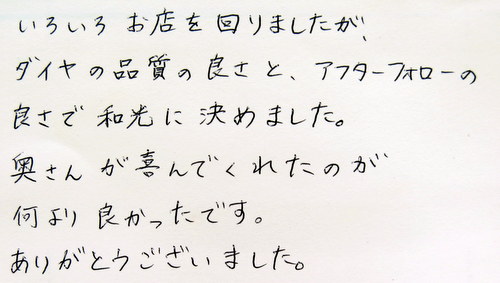 いろいろお店を回りましたが、
ダイヤの品質の良さと、アフターフォローの
良さで和光に決めました。
奥さんが喜んでくれたのが
何より良かったです。
ありがとうございました。